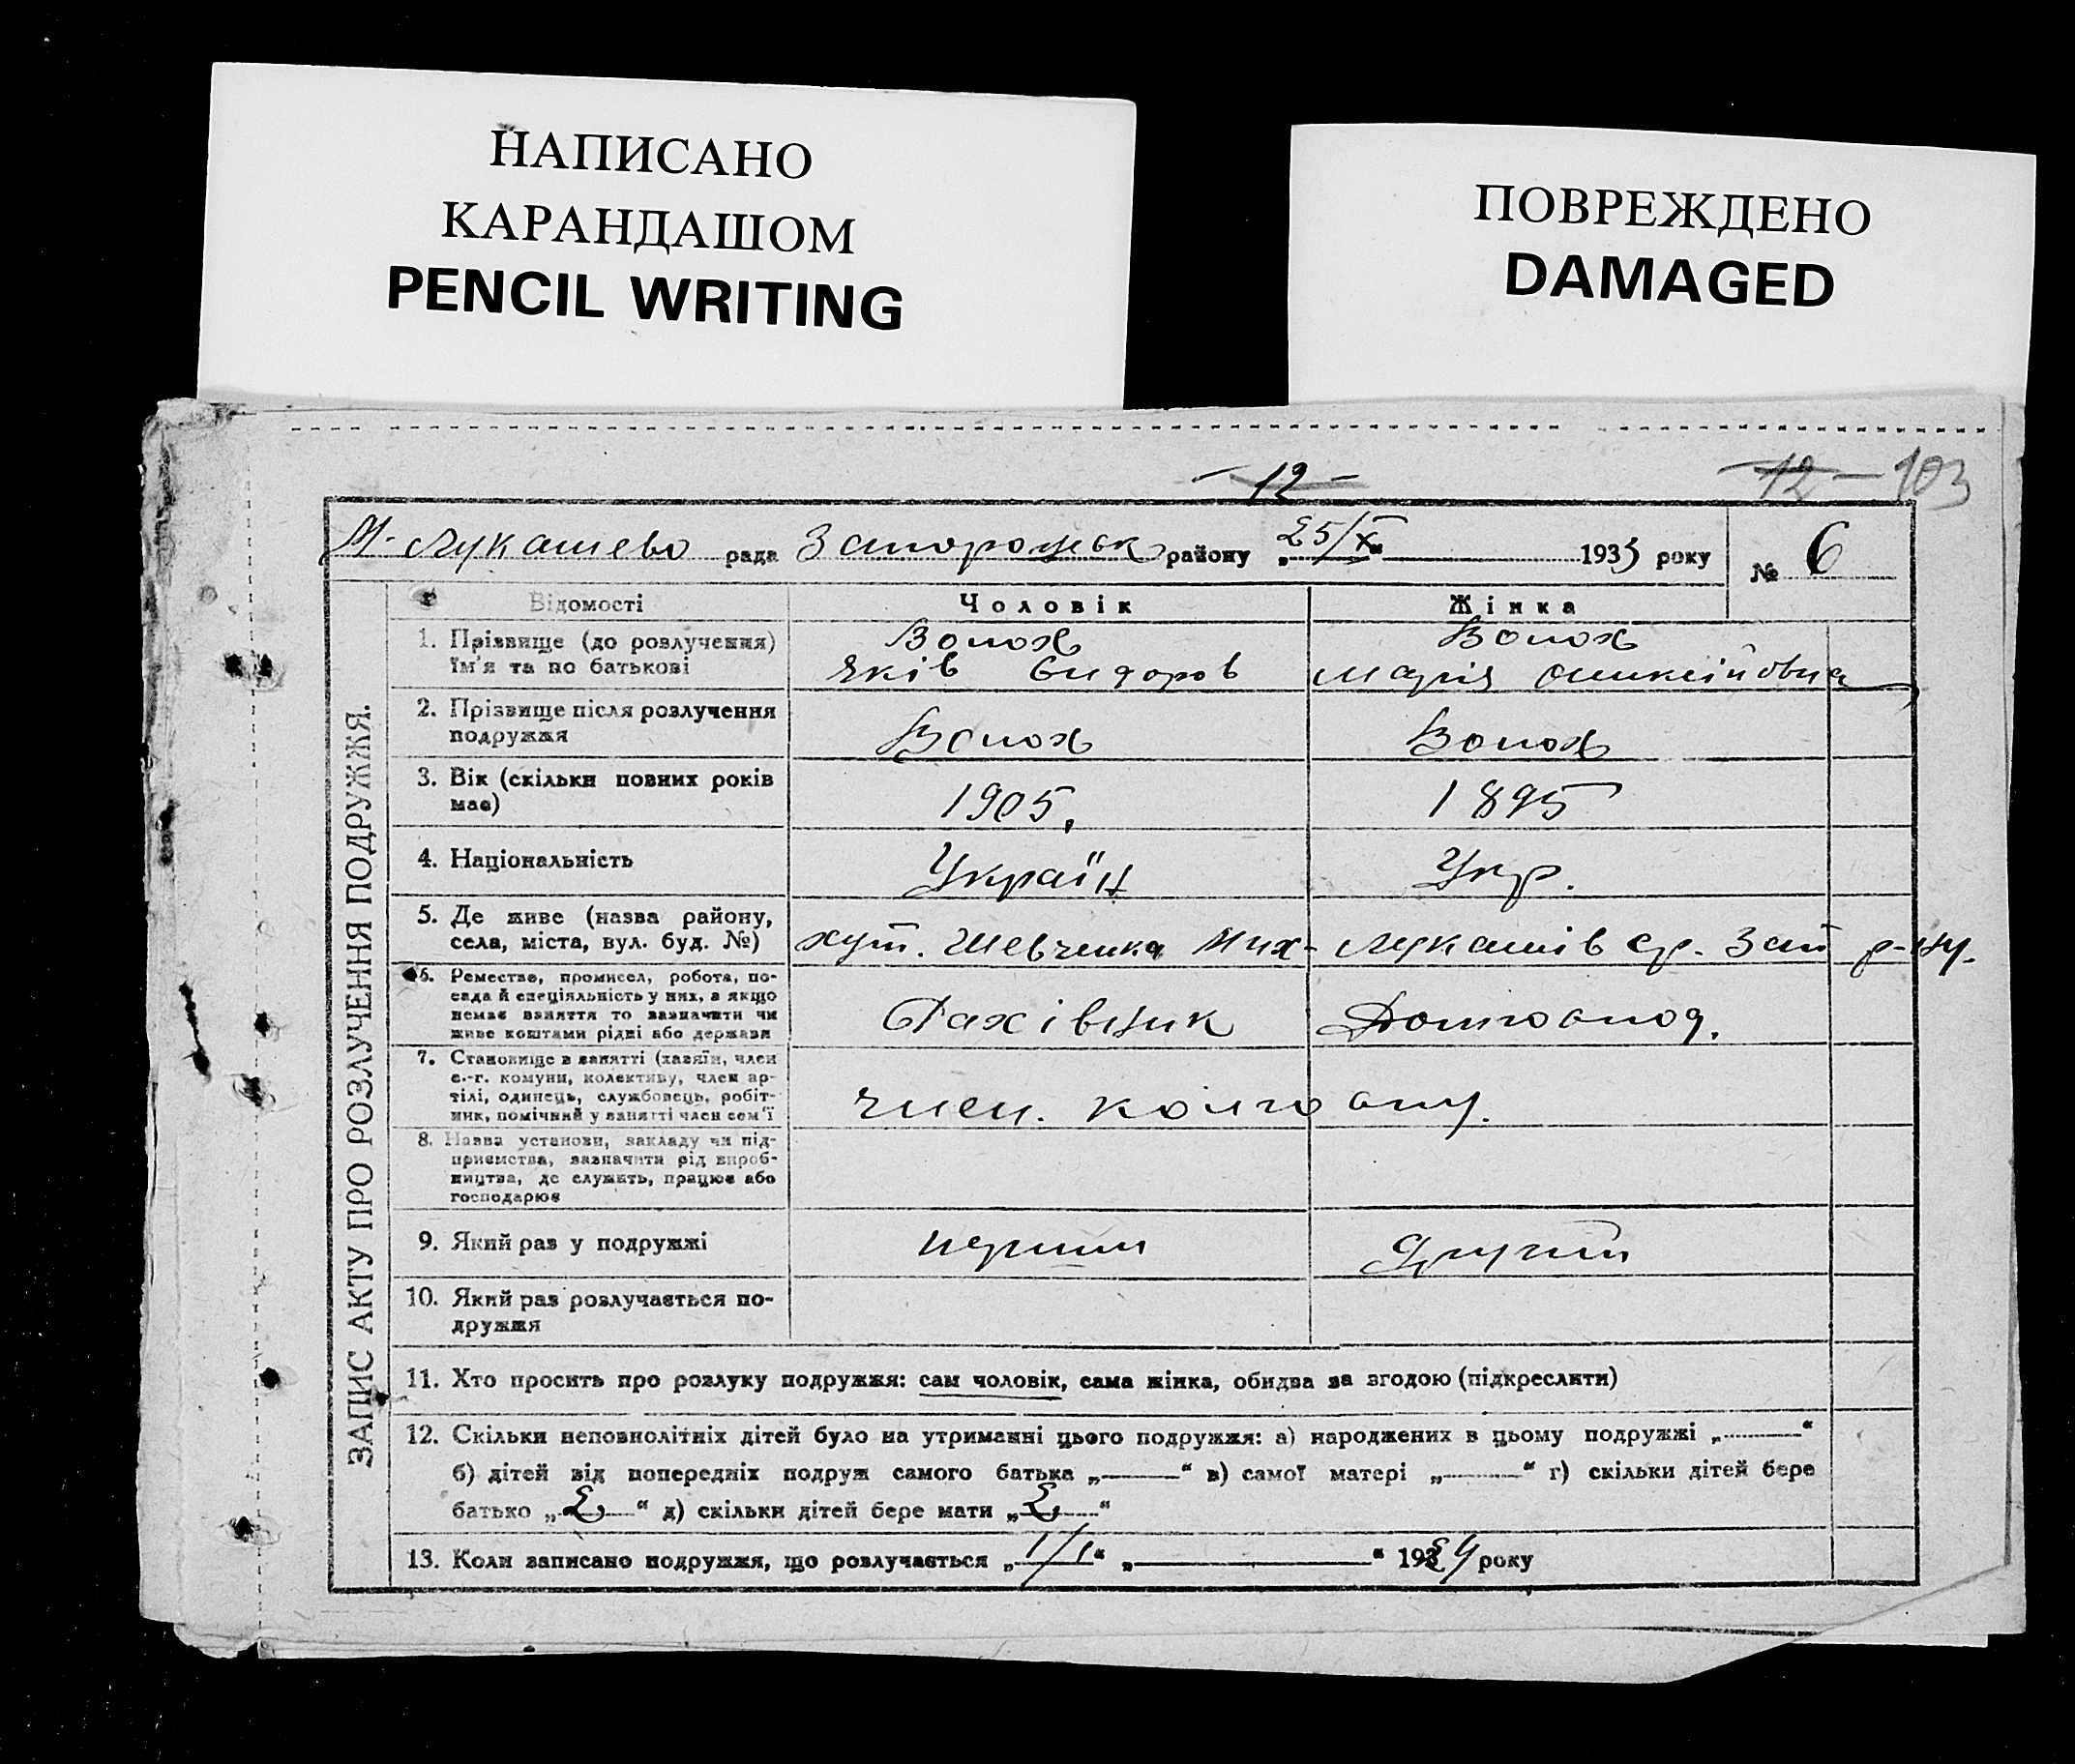 НАПИСАНО
КАРАНДАШОМ
PENCIL WRITING
ПОВРЕЖДЕНО
DAMAGED
- 12 -
12 - 103
М-Лукашево рада Запорожск району „25/X“ 1935 року
№ 6
ЗАПИС АКТУ ПРО РОЗЛУЧЕННЯ ПОДРУЖЖЯ.
Відомості Чоловік Жінка
1. Прізвище (до розлучення) Волох Волох
ім'я та по батькові Яків Сидоров Марія Оликсійовна
2. Прізвище після розлучення
подружжя Волох Волох
3. Вік (скільки повних років
має) 1905. 1895
4. Національність Україн Укр.
5. Де живе (назва району,
села, міста, вул. буд. №) хут. Шевченка Мих- Лукашів ср. Зап р-ну.
6. Ремество, промисел, робота, по-
сада й спеціяльність у них, а якщо
немає заняття то зазначити чи
живе коштами рідні або держави Фахівник Домгоспод.
7. Становище в занятті (хазяїн, член
с.-г. комуни, колективу, член ар-
тілі, одинець, службовець, робіт-
ник, помічний у занятті член сем'ї член. колгоспу.
8. Назва установи, закладу чи під-
приємства, зазначити рід вироб-
ництва, де служить, працює або
господарює
9. Який раз у подружжі перший Другий
10. Який раз розлучається по-
дружжя
11. Хто просить про розлуку подружжя: сам чоловік, сама жінка, обидва за згодою (підкреслити)
12. Скільки неповнолітніх дітей було на утриманні цього подружжя: а) народжених в цьому подружжі „ “
б) дітей від попередніх подруж самого батька „ “ в) самої матері „ “ г) скільки дітей бере
батько „2“ д) скільки дітей бере мати „2“
13. Коли записано подружжя, що розлучається „1/I“ „ “ 1924 року